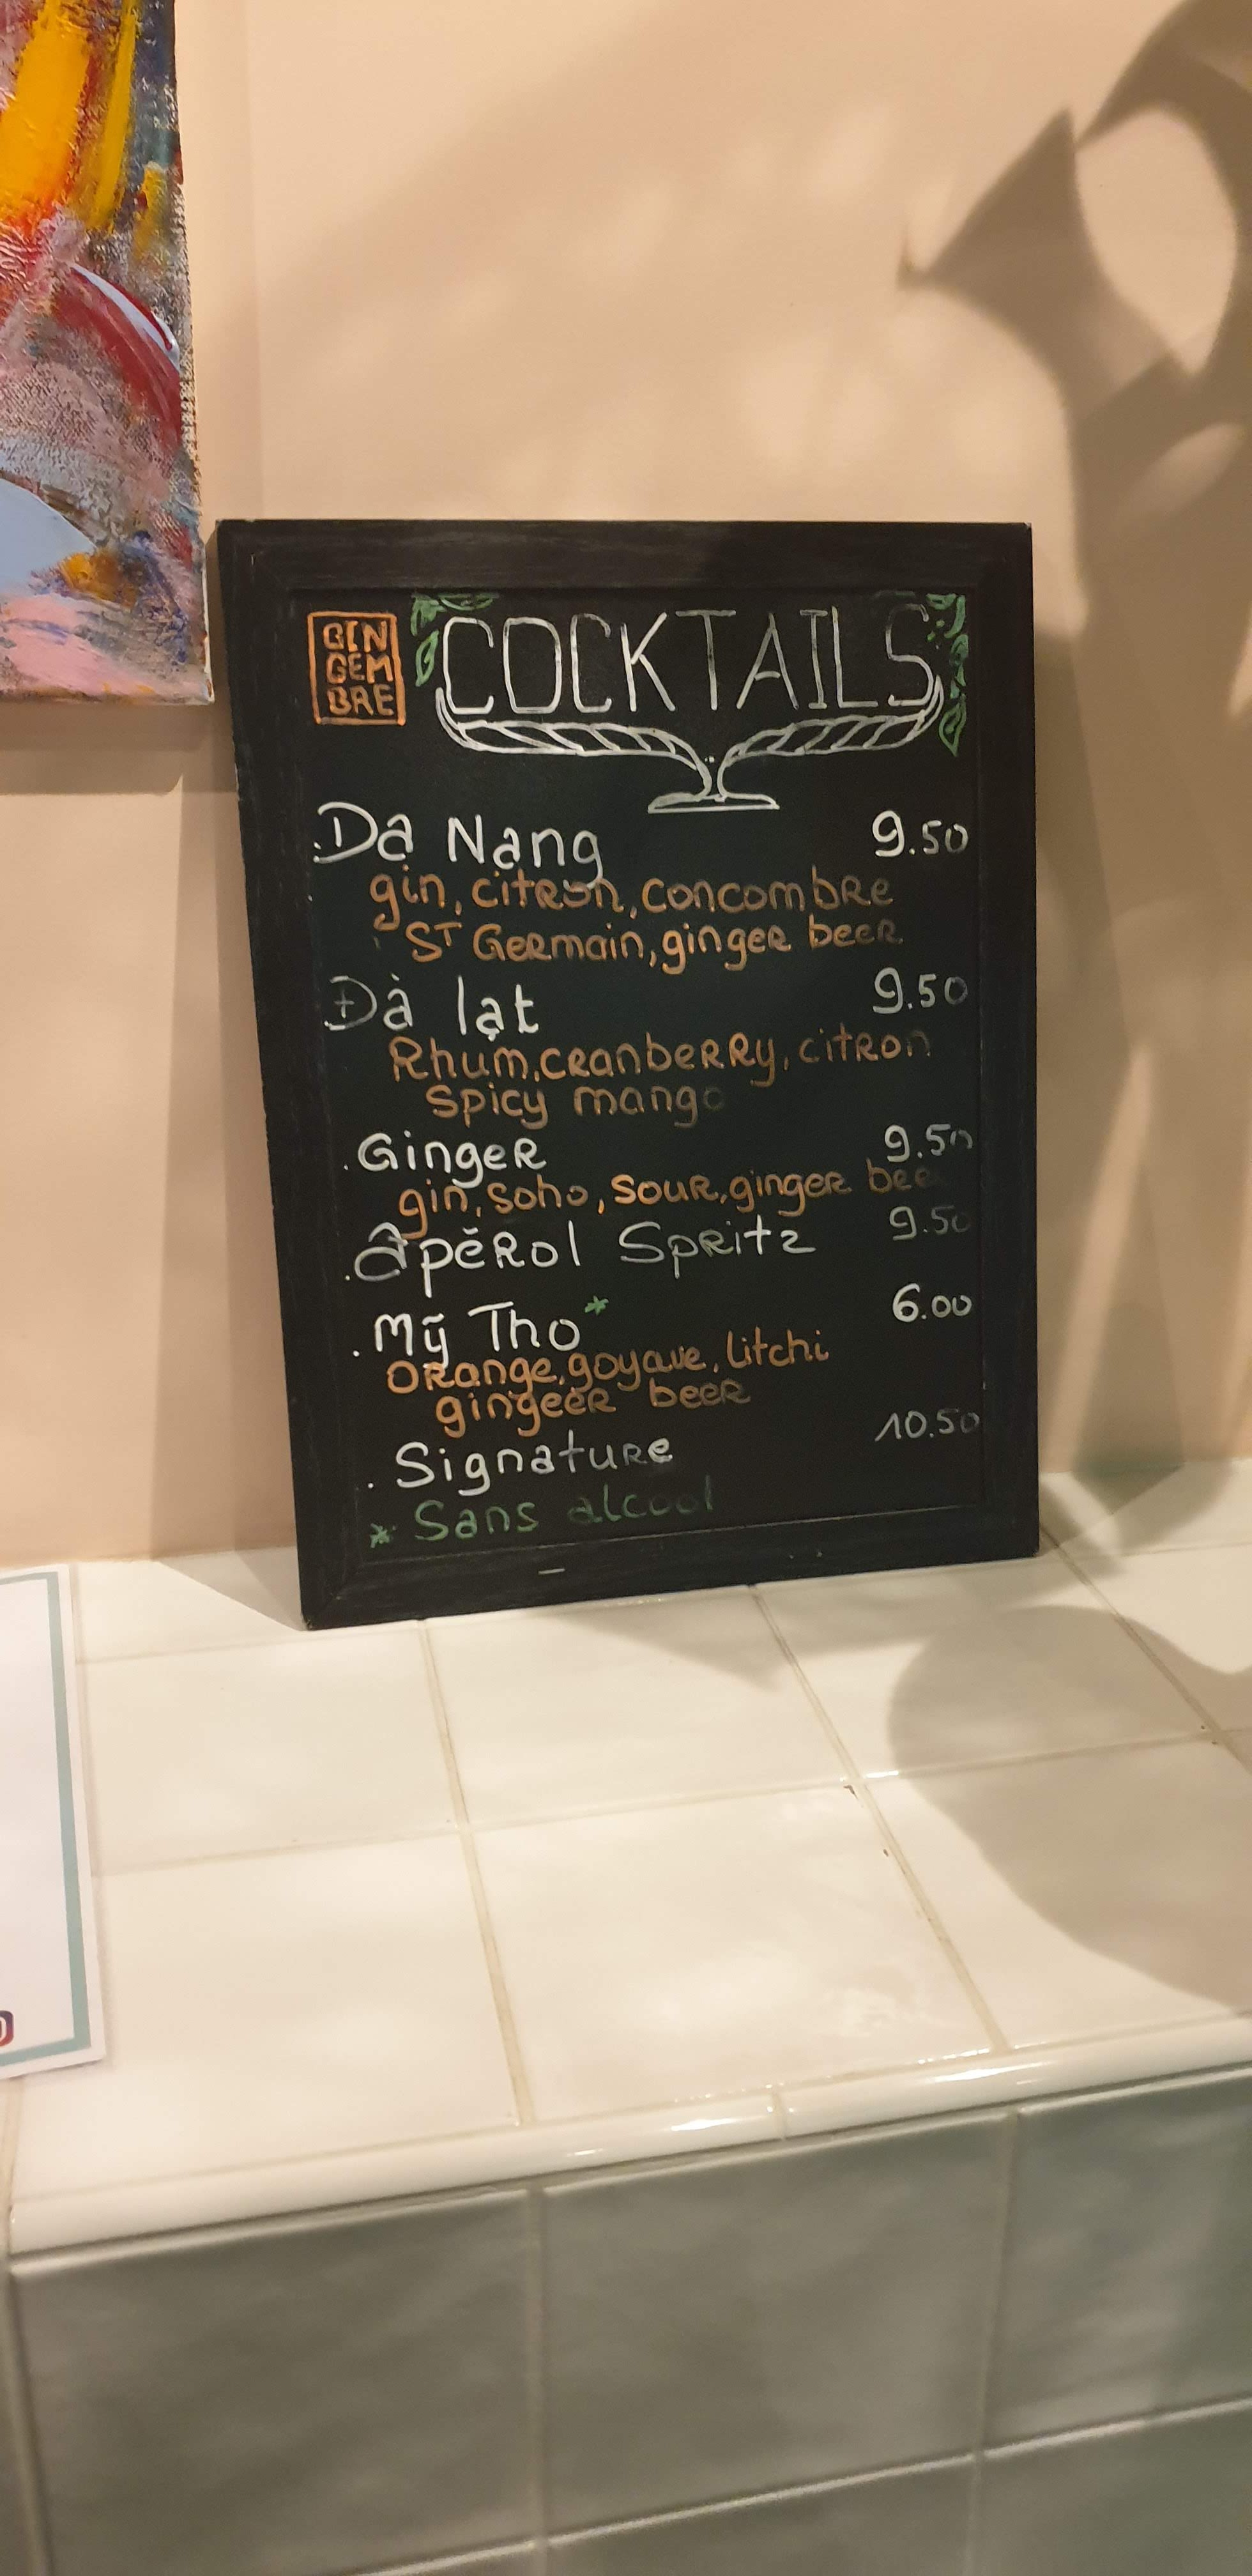 GIN
GEM
BRE
COCKTAILS
.Da Nang 9.50
gin, citron, concombre
ST Germain, ginger beer
Đà lạt 9.50
Rhum, cranberry, citron
spicy mango
.Ginger 9.50
gin, soho, sour, ginger bee
.Âpérol Spritz 9.50
.Mỹ Tho* 6.00
orange, goyave, litchi
gingeer beer
.Signature 10.50
* Sans alcool